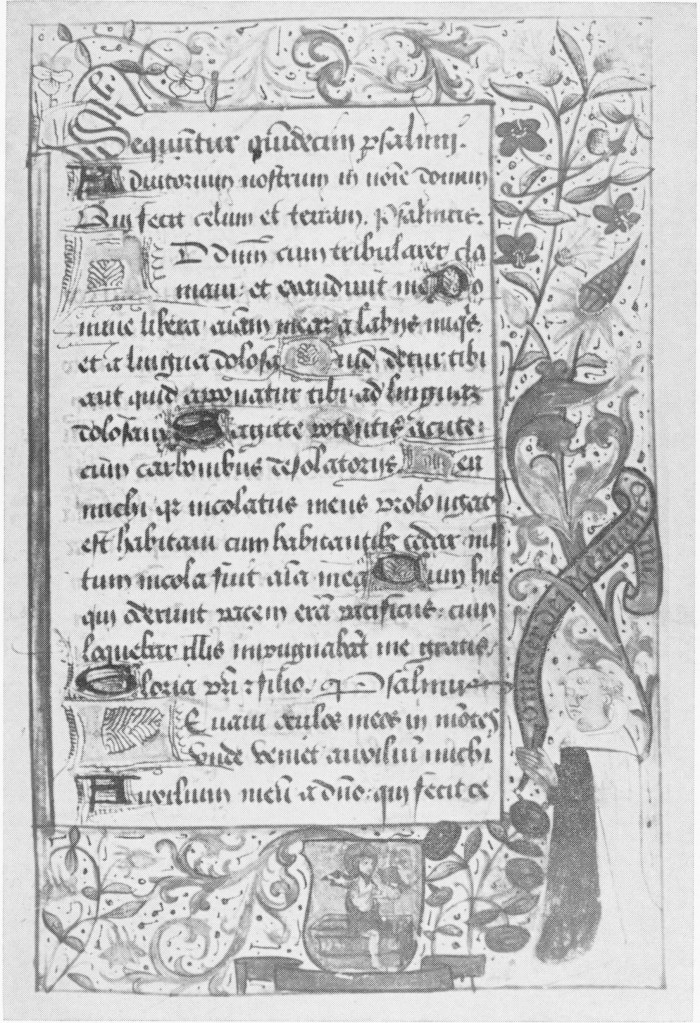 Sequūtur quīdecim psalmi.
Adiutorium nostrum in noīe domini
Qui fecit celum et terram. Psalmus.
AD dn̄m cum tribularer cla
maui: et exaudiuit me Do
mine libera aīam meaꝫ a labijs iniq̄s.
et a lingua dolosa Quid detur tibi
aut quid apponatur tibi ad linguaꝫ
dolosam Sagitte potentis acute:
cum carbonibus desolatorijs Heu
michi qꝛ incolatus meus prolongatꝰ
est habitaui cum habitantibꝫ cedar mul
tum incola fuit aīa mea Cum his
qui oderunt pacem erā pacificus: cum
loquebar illis impugnabāt me gratis.
Gloria pr̄i ⁊ filio. Psalmus
Leuaui oculos meos in mōtes
vnde veniet auxiliū michi
Auxilium meū a dn̄o: qui fecit ce
dei Memento